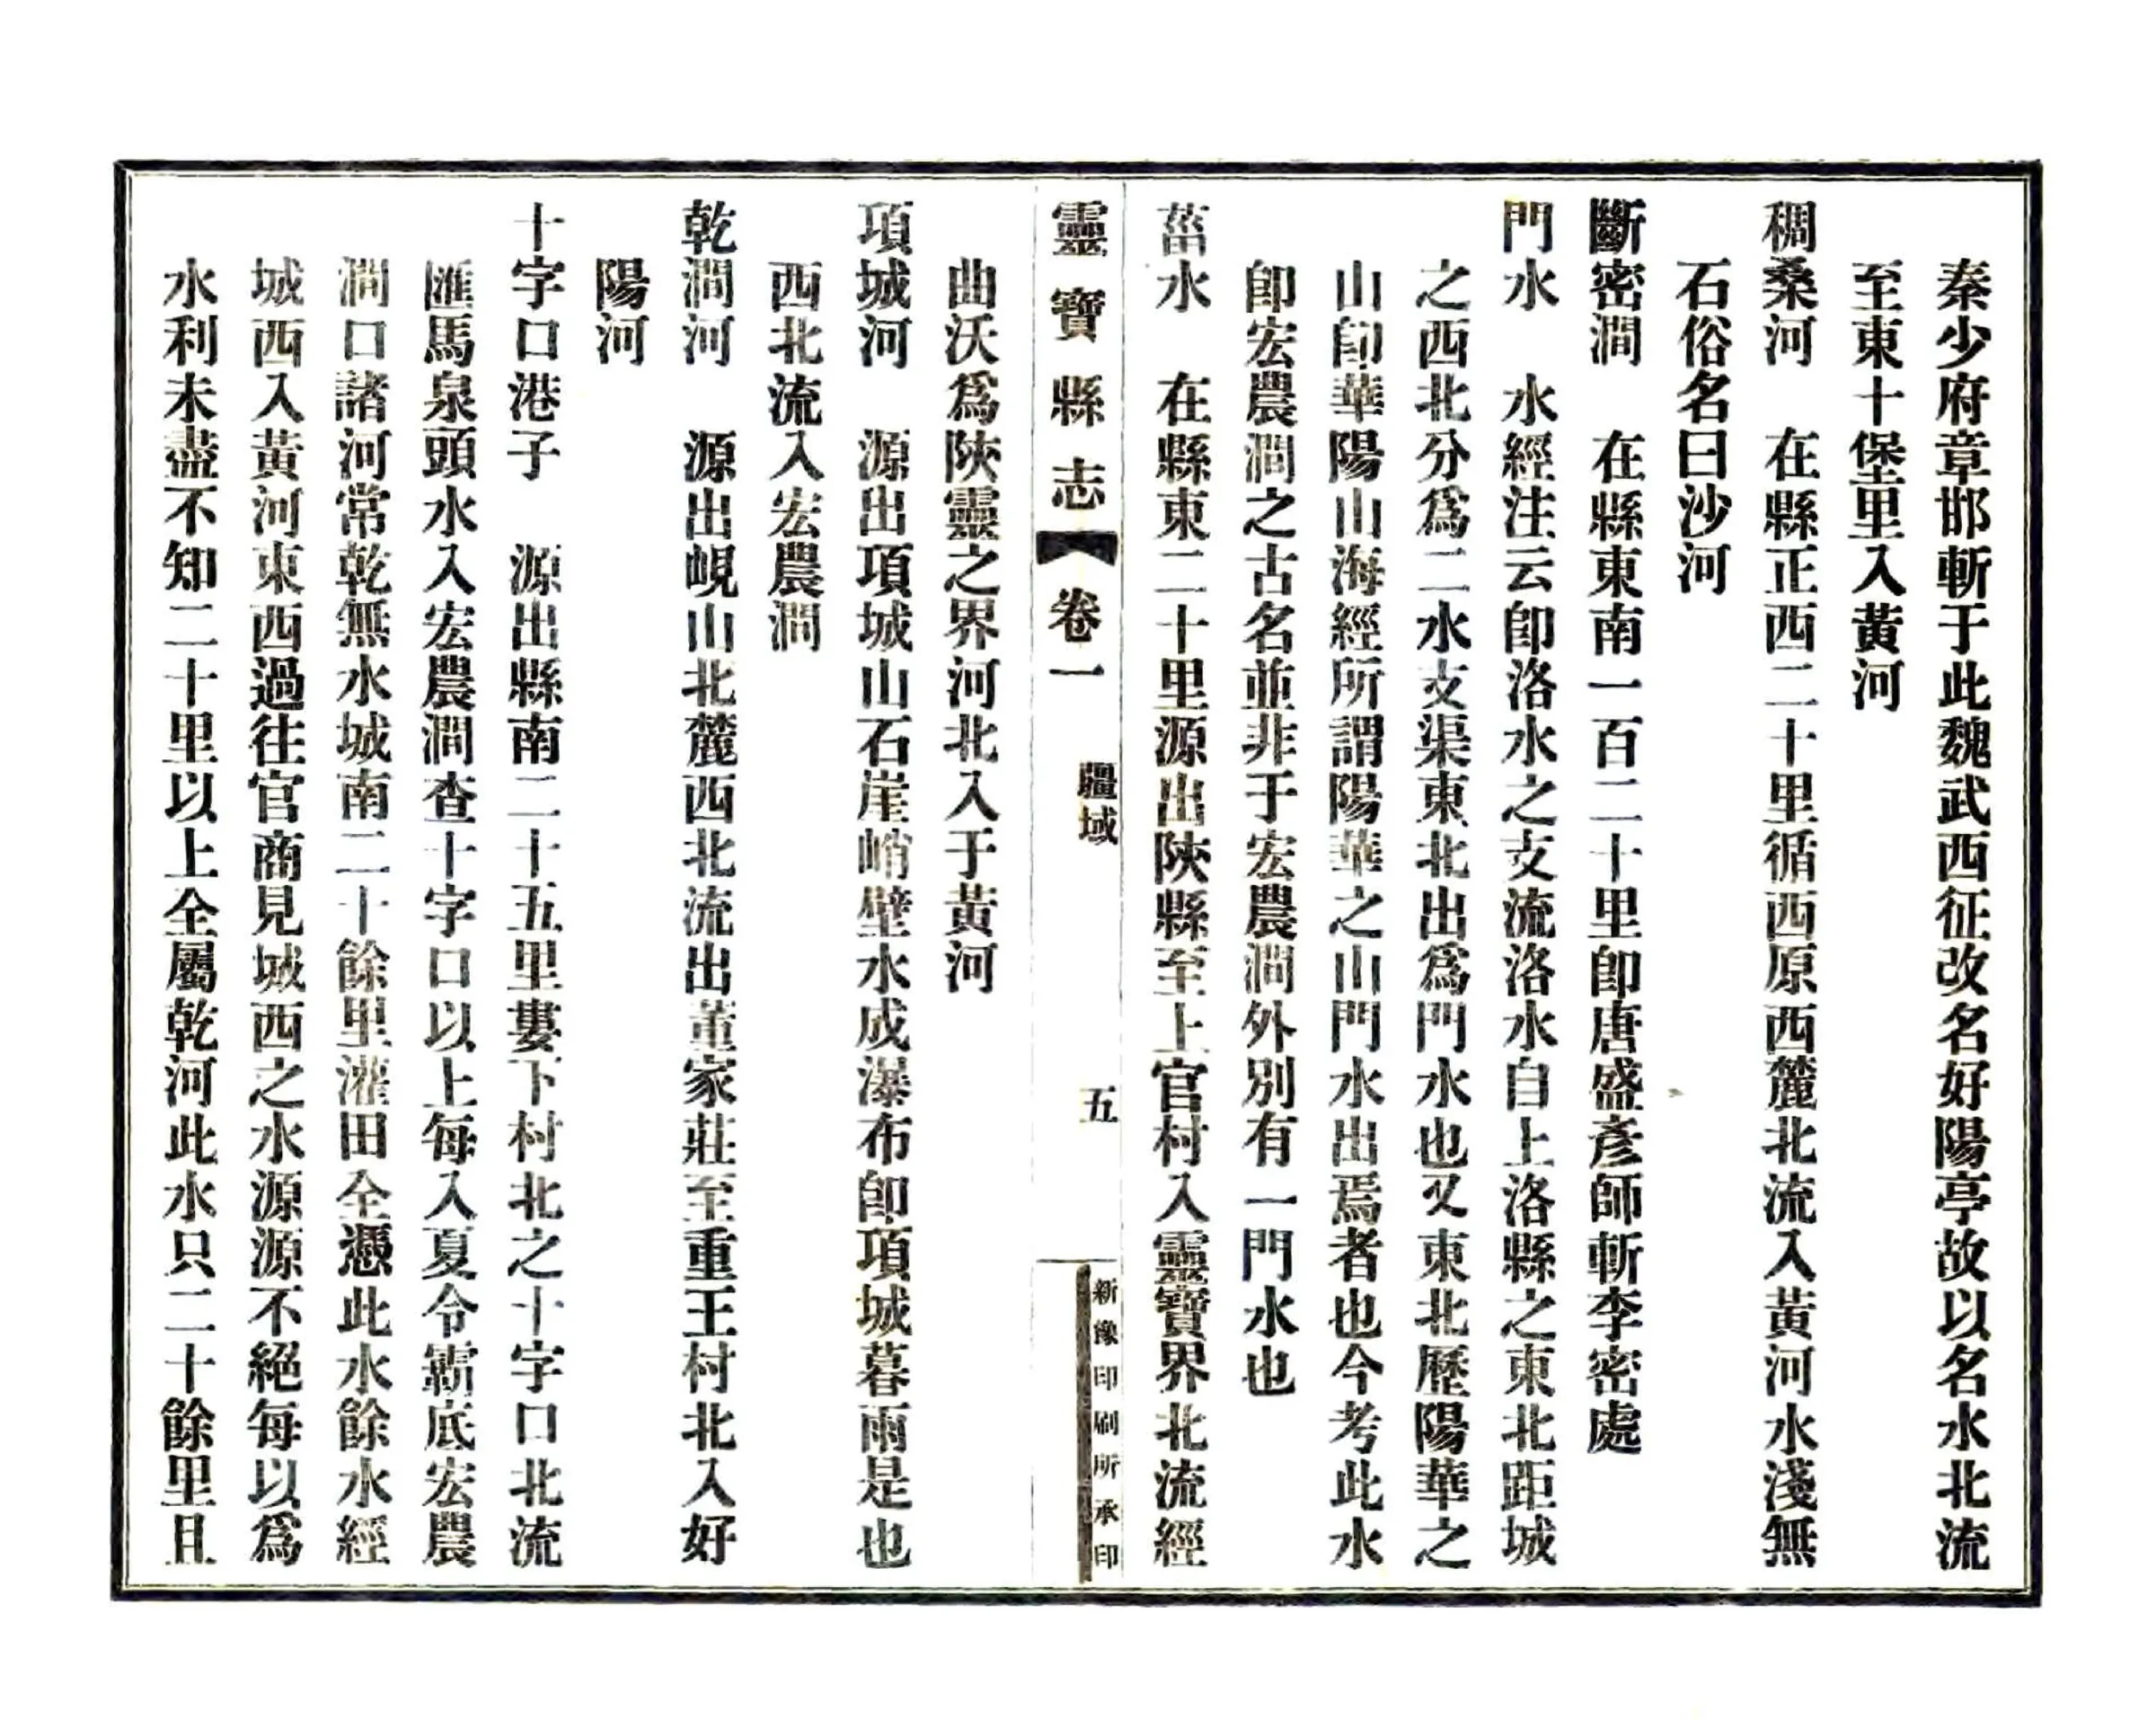 秦少府章邯斬于此魏武西征改名好陽亭故以名水北流
至東十堡里入黃河
稠桑河　在縣正西二十里循西原西麓北流入黃河水淺無
石俗名曰沙河
斷密澗　在縣東南一百二十里卽唐盛彥師斬李密處
門水　水經注云卽洛水之支流洛水自上洛縣之東北距城
之西北分爲二水支渠東北出爲門水也又東北歷陽華之
山卽華陽山海經所謂陽華之山門水出焉者也今考此水
卽宏農澗之古名並非于宏農澗外別有一門水也
菑水　在縣東二十里源出陝縣至上官村入靈寶界北流經
靈寶縣志
卷一
疆域
五
新豫印刷所承印
曲沃爲陝靈之界河北入于黃河
項城河　源出項城山石崖峭壁水成瀑布卽項城暮雨是也
西北流入宏農澗
乾澗河　源出峴山北麓西北流出董家莊至重王村北入好
陽河
十字口港子　源出縣南二十五里婁下村北之十字口北流
匯馬泉頭水入宏農澗查十字口以上每入夏令霸底宏農
澗口諸河常乾無水城南二十餘里灌田全憑此水餘水經
城西入黃河東西過往官商見城西之水源源不絕每以爲
水利未盡不知二十里以上全屬乾河此水只二十餘里且